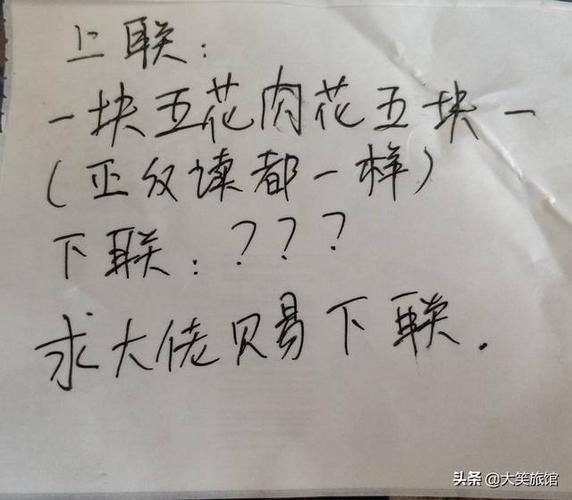 上联:
一块五花肉花五块一
(正反读都一样)
下联:???
求大佬赐下联.
头条 @大笑旅馆